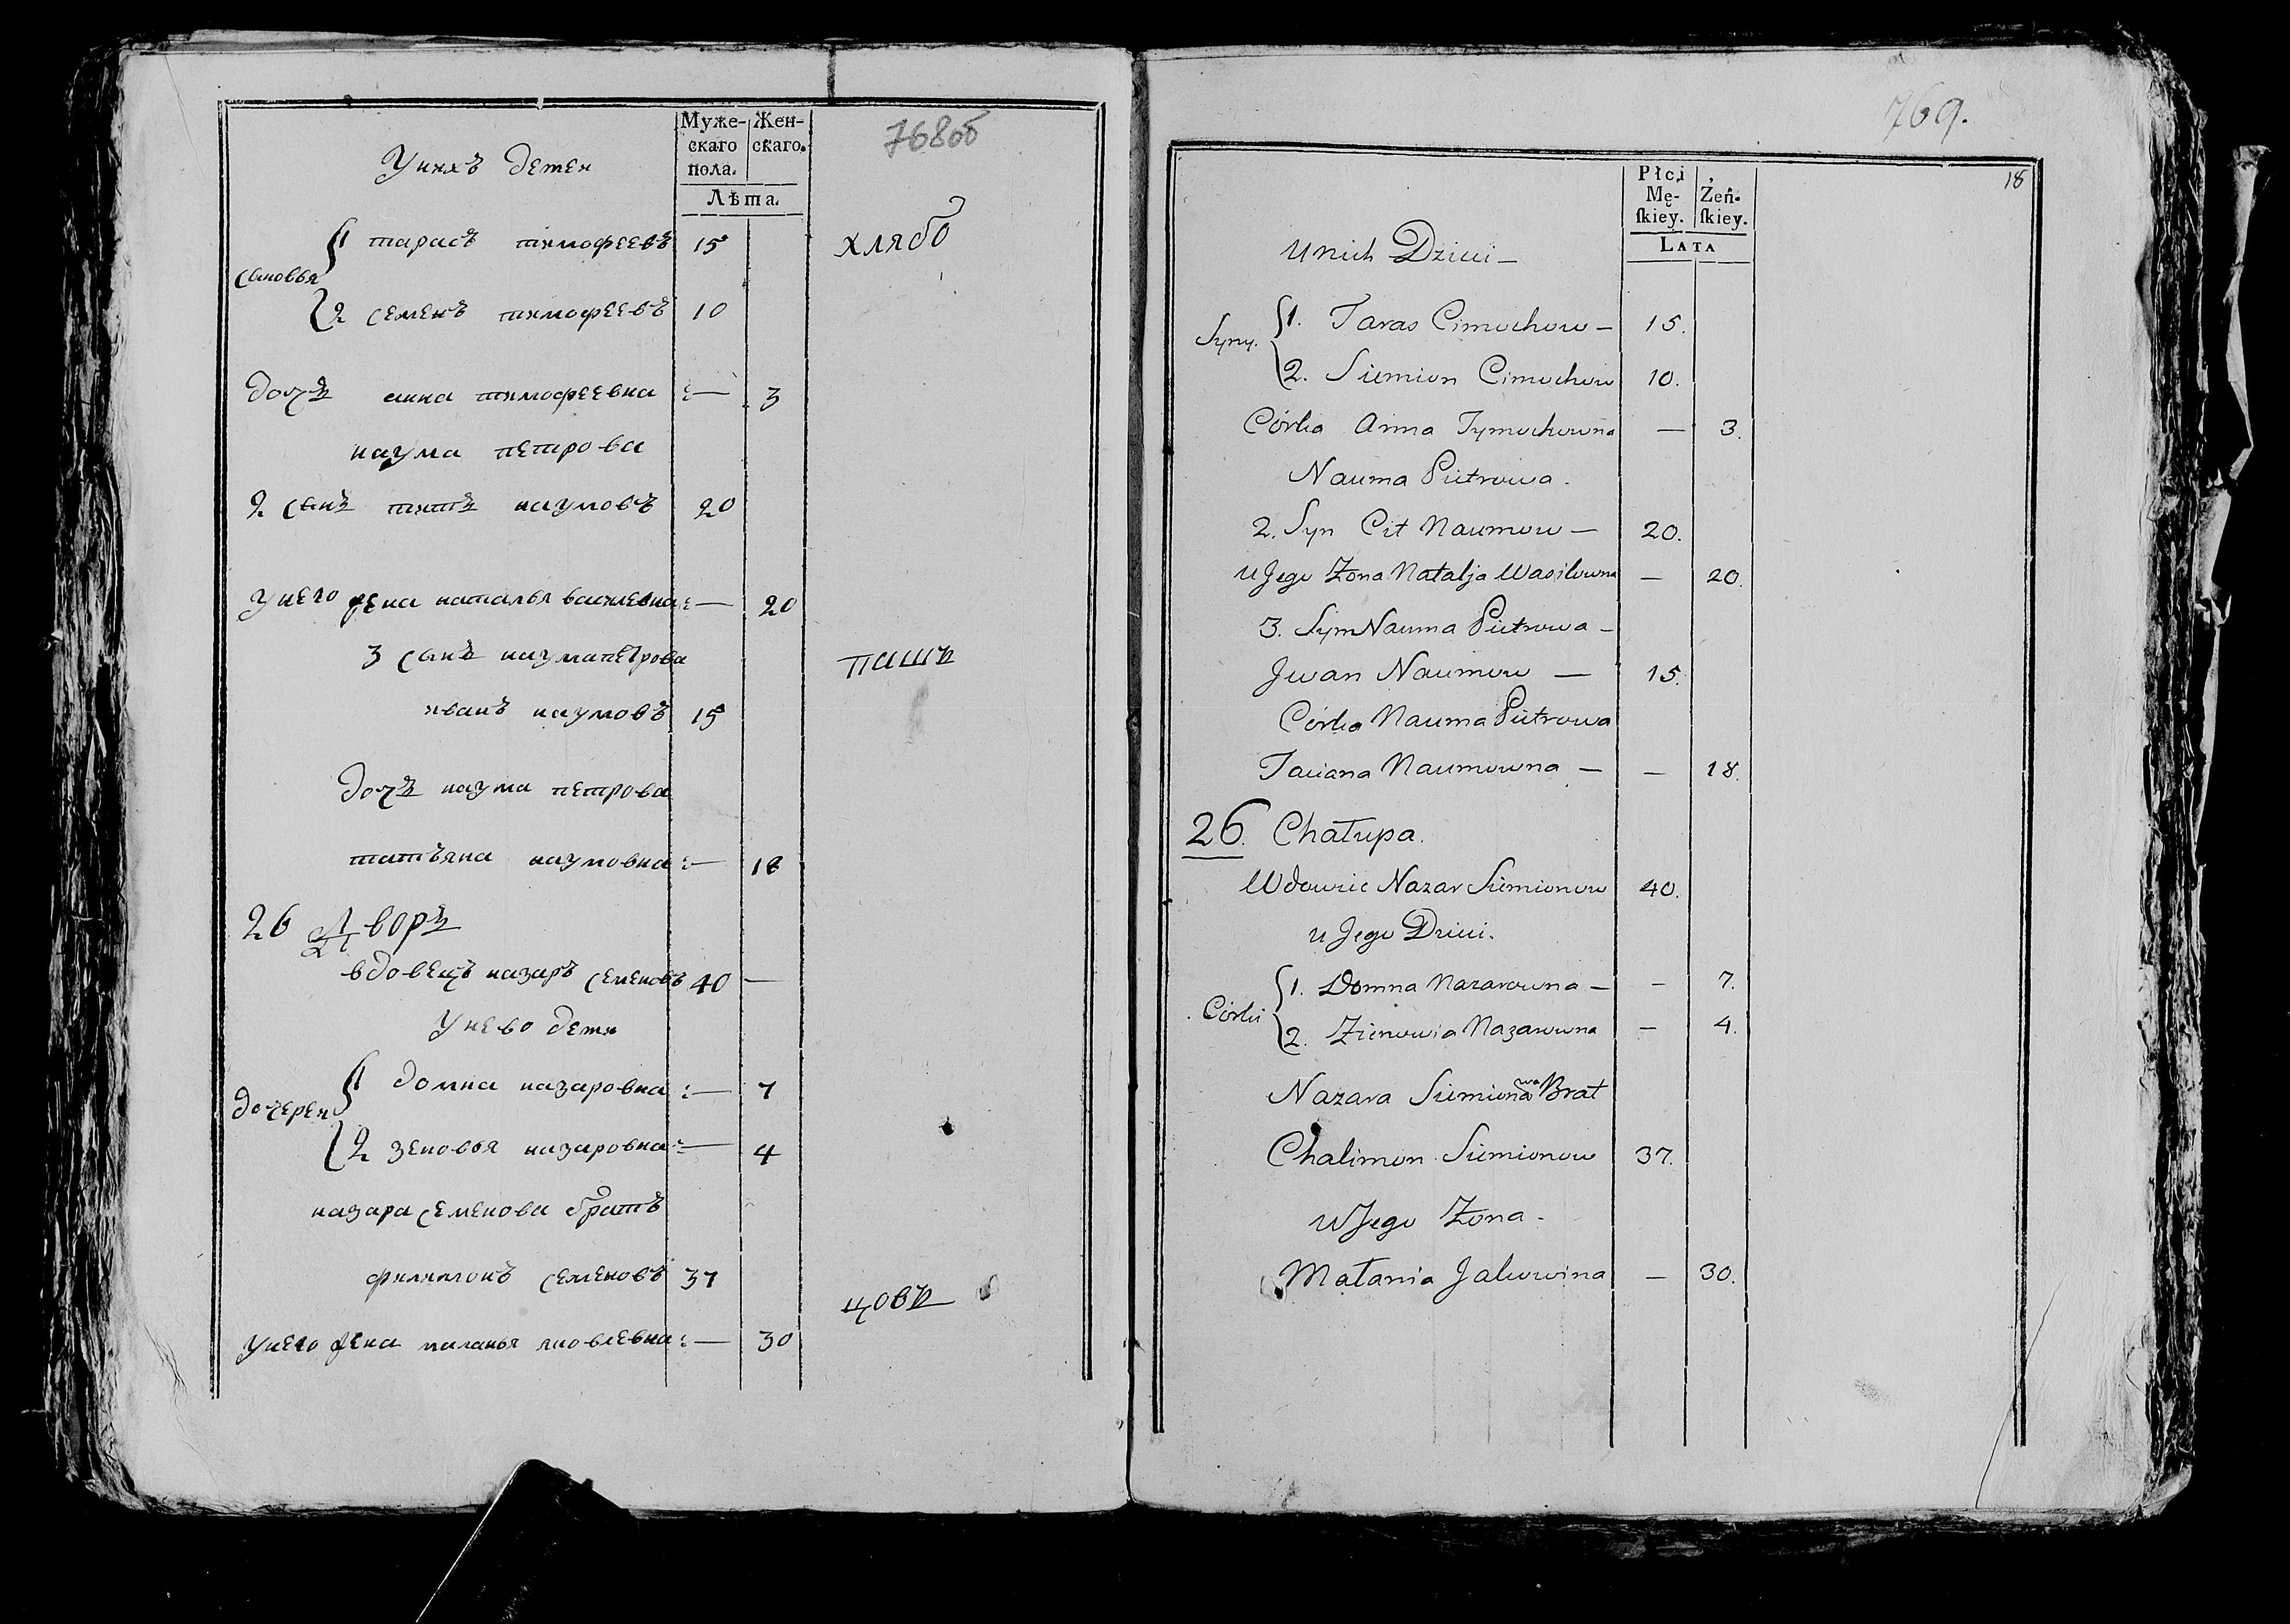 Муже-
скаго
пола.
Жен-
скаго.
Лѣта.
768об
У нихъ детеи
сыновья
1 тарасъ тимофеевъ 15
хлябо
2 семенъ тимофеевъ 10
дочь анна тимофеевна — 3
наума петрова
2 сынъ титъ наумовъ 20
У него жена наталья василевна — 20
3 сынъ наума петрова
пашъ
иванъ наумовъ 15
дочь наума петрова
татьяна наумовна — 18
26 Дворъ
вдовецъ назаръ семеновъ 40 —
У нево дети
дочереи
1 домна назаровна — 7
2 зеновья назаровна — 4
назара семенова братъ
филимонъ семеновъ 37
цовъ
У него жена маланья яковлевна — 30
769.
18
Płci
Mę-
ſkiey.
Żeń-
ſkiey.
LATA
U nich Dzieci —
Syny.
1. Taras Cimochow — 15.
2. Siemion Cimochow 10.
Córka Anna Tymochowna — 3.
Nauma Pietrowa.
2. Syn Cit Naumow — 20.
u Jego Żona Natalja Wasilowna — 20.
3. Syn Nauma Pietrowa —
Jwan Naumow — 15.
Córka Nauma Pietrowa
Taciana Naumowna — — 18.
26. Chałupa.
Wdowiec Nazar Siemionow 40.
u Jego Dzieci.
Córki
1. Domna Nazarowna — — 7.
2. Zienowia Nazarowna — 4.
Nazara Siemionowa Brat
Chalimon Siemionow 37.
u Jego Żona.
Małania Jakowina — 30.